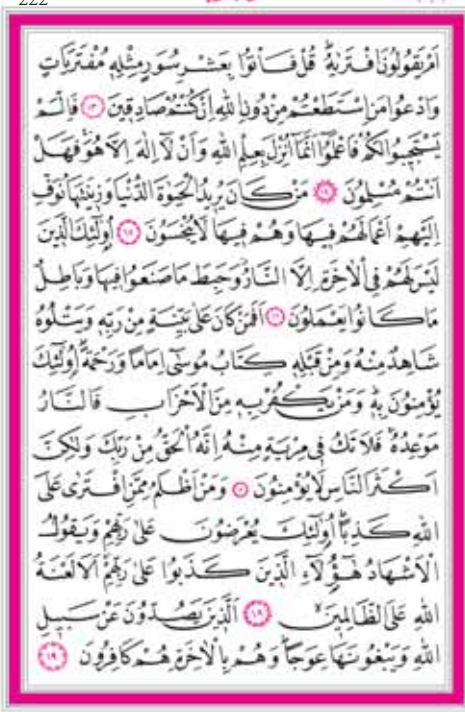 222
اَمْ يَقُولُونَ افْتَرٰيهُ قُلْ فَأْتُوا بِعَشْرِ سُوَرٍ مِثْلِهٖ مُفْتَرَيَاتٍ
وَادْعُوا مَنِ اسْتَطَعْتُمْ مِنْ دُونِ اللهِ اِنْ كُنْتُمْ صَادِقٖينَ ﴿١٣﴾ فَاِلَّمْ
يَسْتَجٖيبُوا لَكُمْ فَاعْلَمُوا اَنَّمَا اُنْزِلَ بِعِلْمِ اللهِ وَاَنْ لَا اِلٰهَ اِلَّا هُوَ فَهَلْ
اَنْتُمْ مُسْلِمُونَ ﴿١٤﴾ مَنْ كَانَ يُرٖيدُ الْحَيٰوةَ الدُّنْيَا وَزٖينَتَهَا نُوَفِّ
اِلَيْهِمْ اَعْمَالَهُمْ فٖيهَا وَهُمْ فٖيهَا لَا يُبْخَسُونَ ﴿١٥﴾ اُولٰئِكَ الَّذٖينَ
لَيْسَ لَهُمْ فِي الْاٰخِرَةِ اِلَّا النَّارُ وَحَبِطَ مَا صَنَعُوا فٖيهَا وَبَاطِلٌ
مَا كَانُوا يَعْمَلُونَ ﴿١٦﴾ اَفَمَنْ كَانَ عَلٰى بَيِّنَةٍ مِنْ رَبِّهٖ وَيَتْلُوهُ
شَاهِدٌ مِنْهُ وَمِنْ قَبْلِهٖ كِتَابُ مُوسٰى اِمَامًا وَرَحْمَةً اُولٰئِكَ
يُؤْمِنُونَ بِهٖ وَمَنْ يَكْفُرْ بِهٖ مِنَ الْاَحْزَابِ فَالنَّارُ
مَوْعِدُهُ فَلَا تَكُ فٖي مِرْيَةٍ مِنْهُ اِنَّهُ الْحَقُّ مِنْ رَبِّكَ وَلٰكِنَّ
اَكْثَرَ النَّاسِ لَا يُؤْمِنُونَ ﴿١٧﴾ وَمَنْ اَظْلَمُ مِمَّنِ افْتَرٰى عَلَى
اللهِ كَذِبًا اُولٰئِكَ يُعْرَضُونَ عَلٰى رَبِّهِمْ وَيَقُولُ
الْاَشْهَادُ هٰؤُلَاءِ الَّذٖينَ كَذَبُوا عَلٰى رَبِّهِمْ اَلَا لَعْنَةُ
اللهِ عَلَى الظَّالِمٖينَ ﴿١٨﴾ اَلَّذٖينَ يَصُدُّونَ عَنْ سَبٖيلِ
اللهِ وَيَبْغُونَهَا عِوَجًا وَهُمْ بِالْاٰخِرَةِ هُمْ كَافِرُونَ ﴿١٩﴾